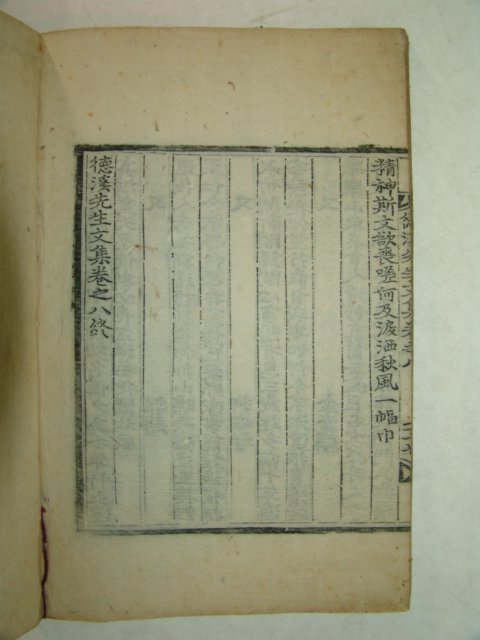 精神斯文欲喪嗟何及淚洒秋風一幅巾
德溪先生文集卷之八終